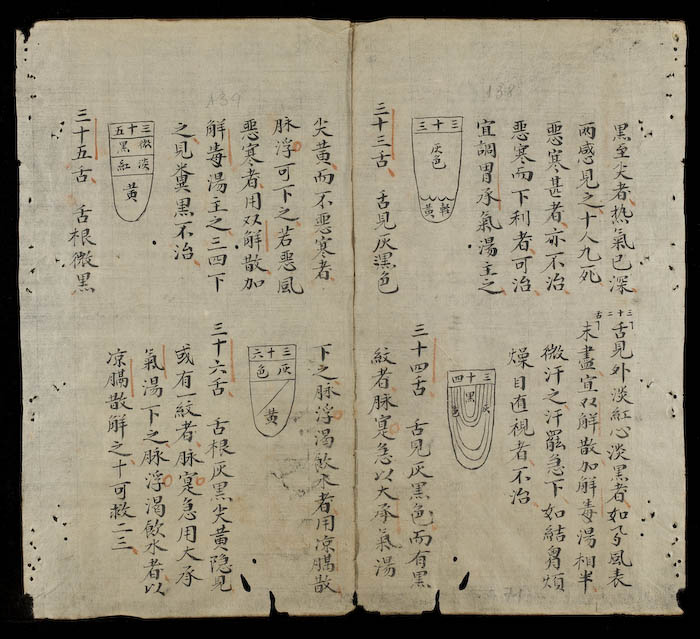 138
黒至尖者熱氣已深
两感見之十人九死
惡寒甚者亦不治
惡寒而下利者可治
宜調胃承氣湯主之
三十三
灰色
黄
三十三舌 舌見灰黒色
139
尖黄而不惡寒者
脉浮可下之若惡風
惡寒者用双解散加
解毒湯主之三四下
之見糞黒不治
三十五
微黒
淡紅
黄
三十五舌 舌根微黒
三十二舌
舌見外淡紅心淡黒者如 風表
未盡宜双解散加解毒湯相半
微汗之汗罷急下如結胷煩
燥目直視者不治
三十四
黒
灰色
三十四舌 舌見灰黒色而有黒
紋者脉寔急以大承氣湯
下之脉浮渴飲水者用凉膈散
三十六
灰色
黄
三十六舌 舌根灰黒尖黄隐見
或有一紋者脉寔急用大承
氣湯下之脉浮渴飲水者以
凉膈散解之十可救二三